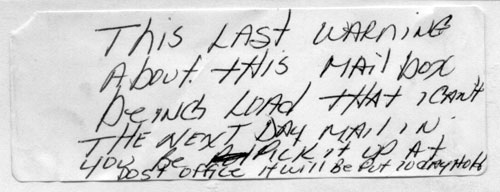 This LAST WARNING
About this MAilbox
being LOAD THAT i CAN'T
THE NEXT DAY MAIL IN.
you be PICK it up At
post office it will be put in